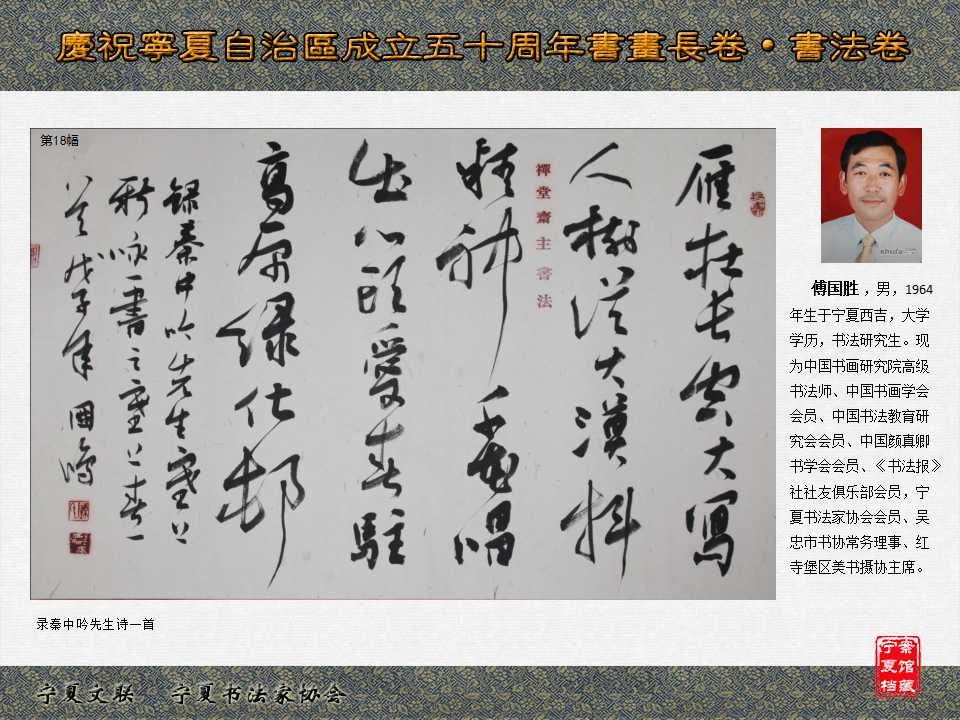 慶祝寧夏自治區成立五十周年書畫長卷·書法卷
第18幅
雁在长空大写
人樹從大漠抖
精神 唱
出心頭愛春駐
高原绿化邨
録秦中吟先生塞上
新咏一書之塞上春一
首 戊子年 國勝
禪堂齋主書法
傅国胜，男，1964
年生于宁夏西吉，大学
学历，书法研究生。现
为中国书画研究院高级
书法师、中国书画学会
会员、中国书法教育研
究会会员、中国颜真卿
书学会会员、《书法报》
社社友俱乐部会员，宁
夏书法家协会会员、吴
忠市书协常务理事、红
寺堡区美书摄协主席。
录秦中吟先生诗一首
宁夏文联 宁夏书法家协会
宁夏档案馆藏